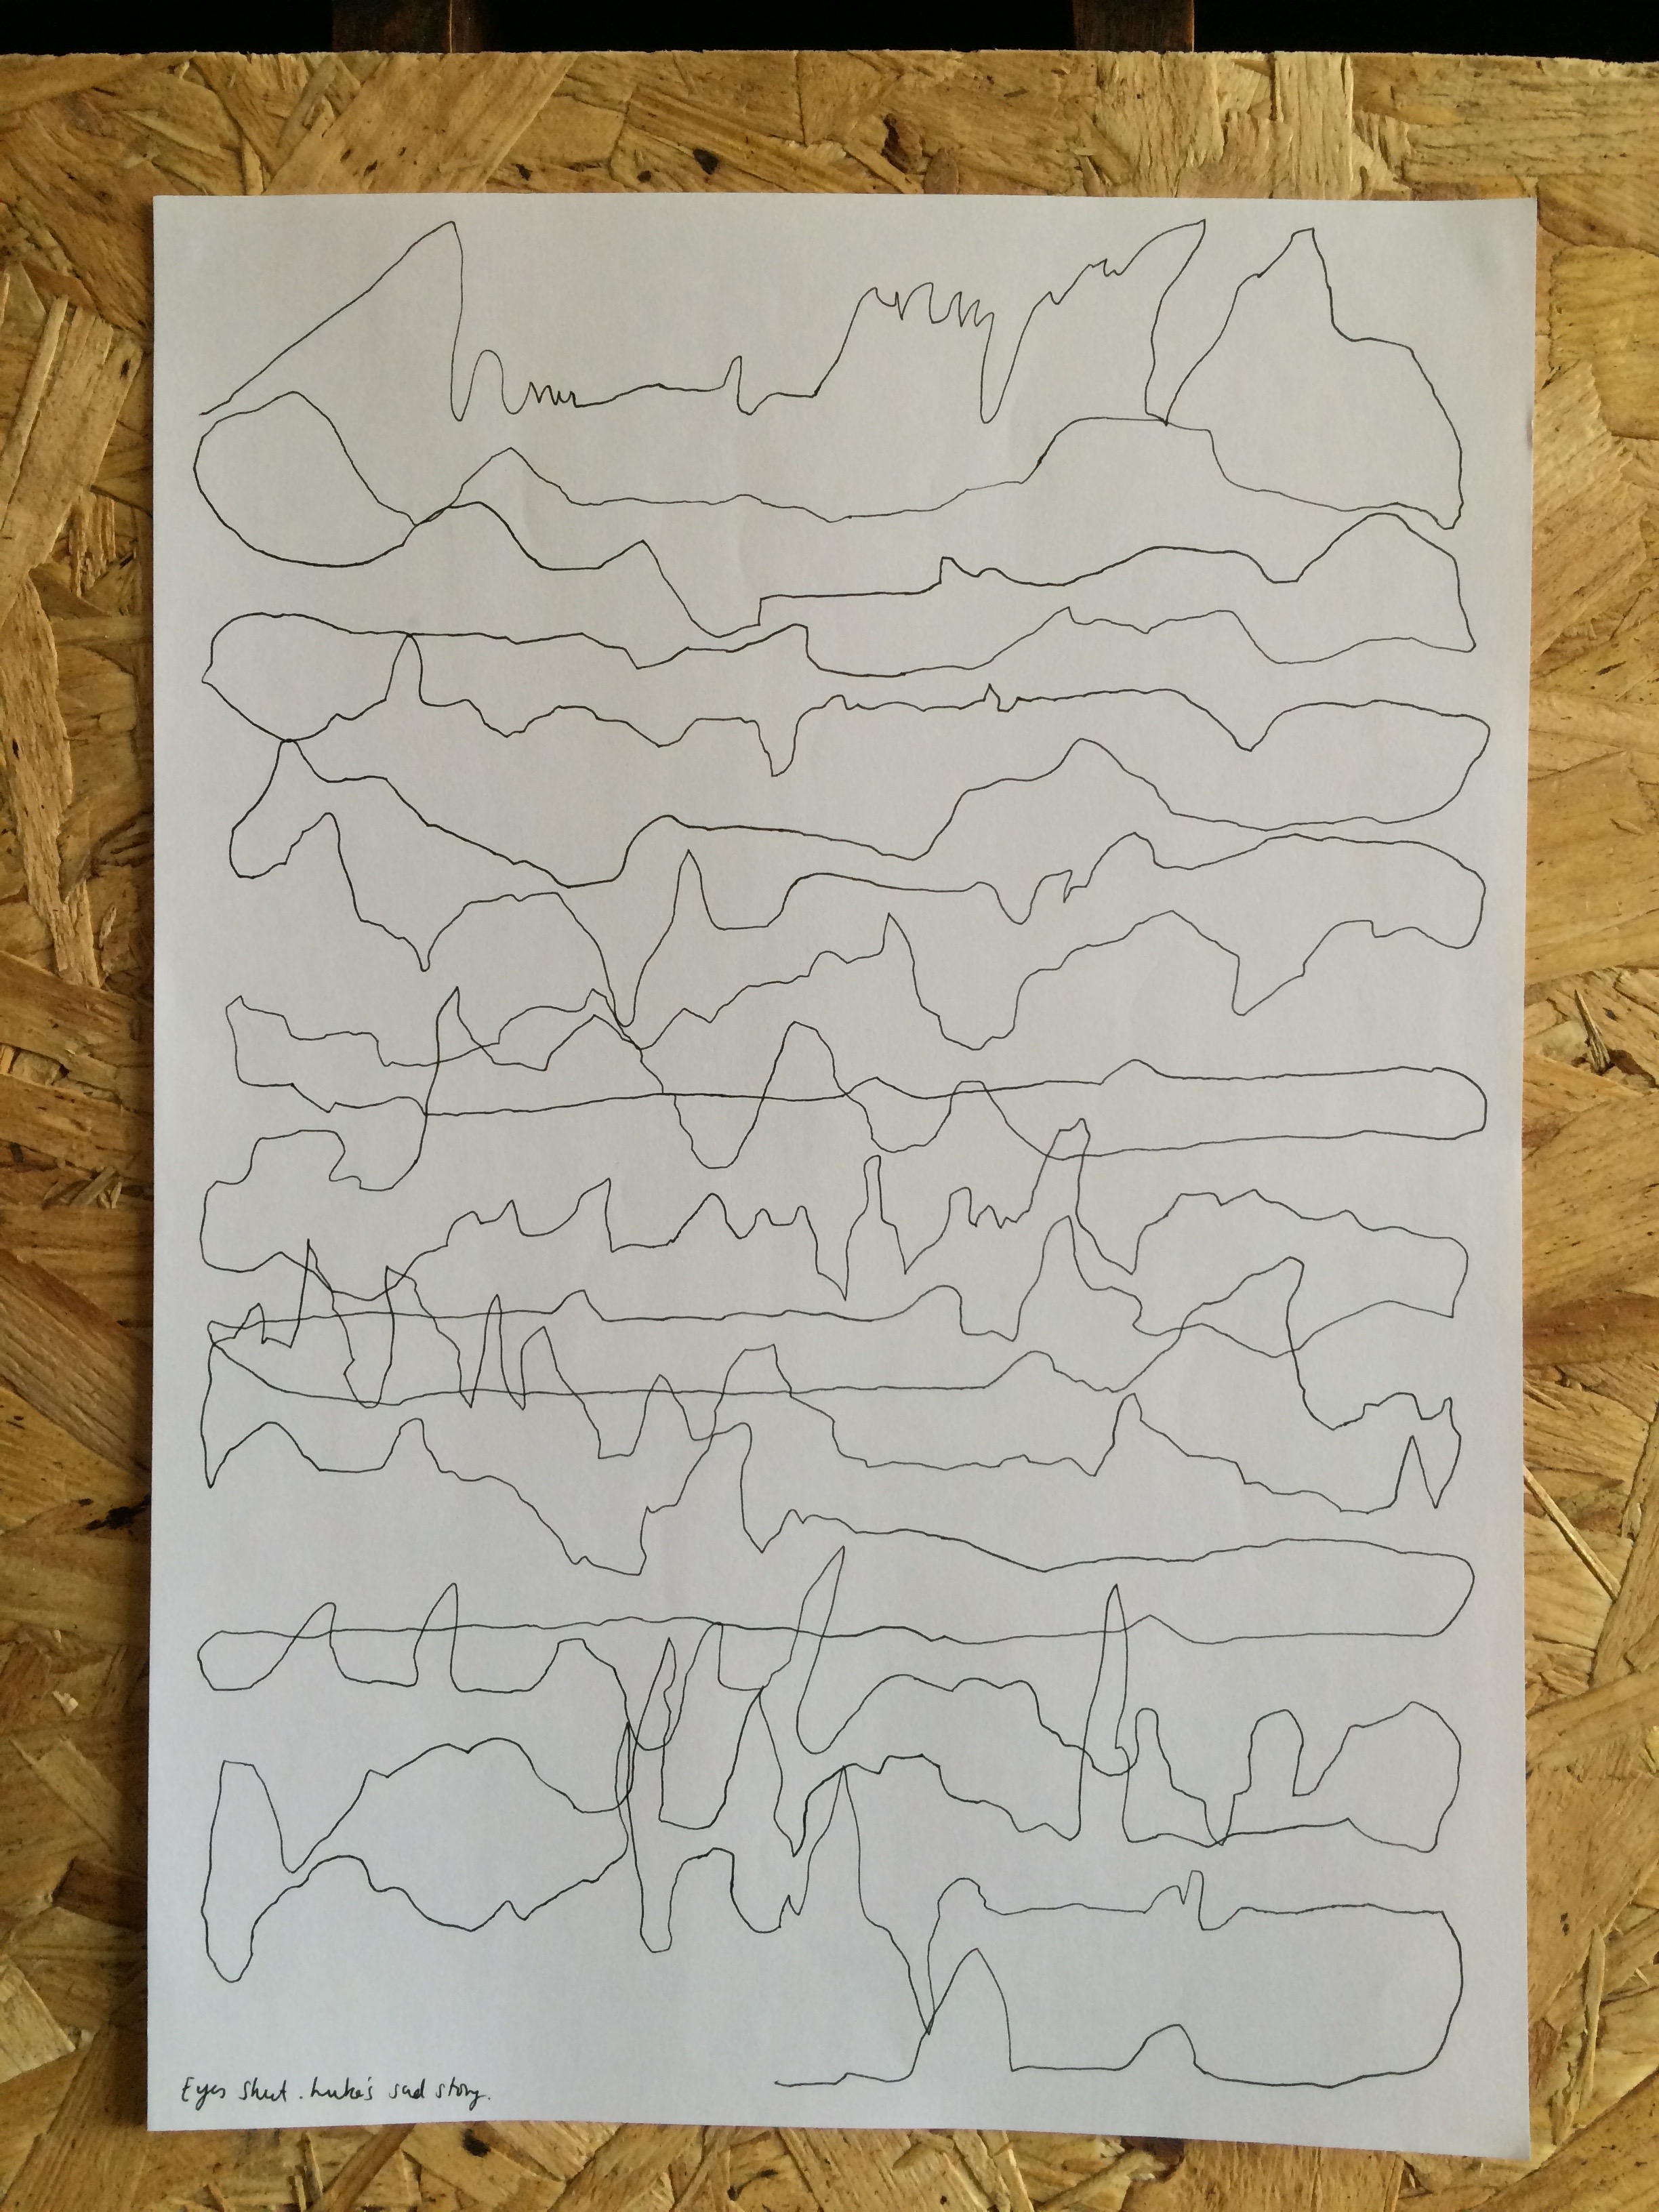 Eyes shut. Luke's sad story.